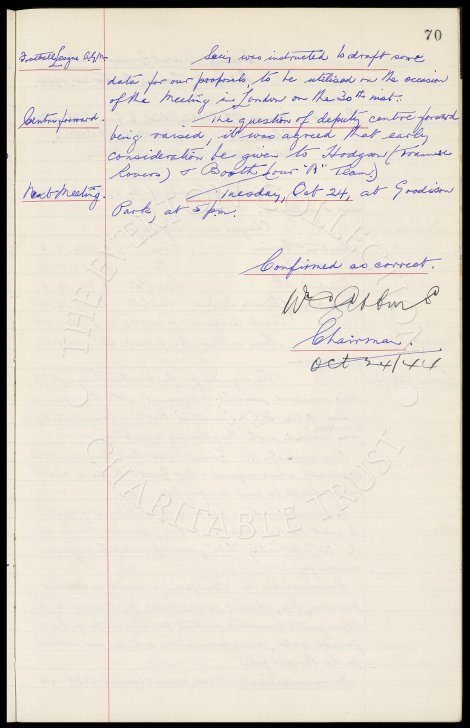 70
Football League A.G.M. Secy. was instructed to draft some
data for our proposals, to be utilised on the occasion
of the Meeting in London on the 30th inst.
Centre forward. The question of deputy centre forward
being raised, it was agreed that early
consideration be given to Hodgson (Tranmere
Rovers) & Booth (our "A" Team)
Next Meeting. Tuesday, Oct 24, at Goodison
Park, at 5 pm.
Confirmed as correct.
Chairman.
Oct 24/44
THE EVERTON COLLECTION
CHARITABLE TRUST